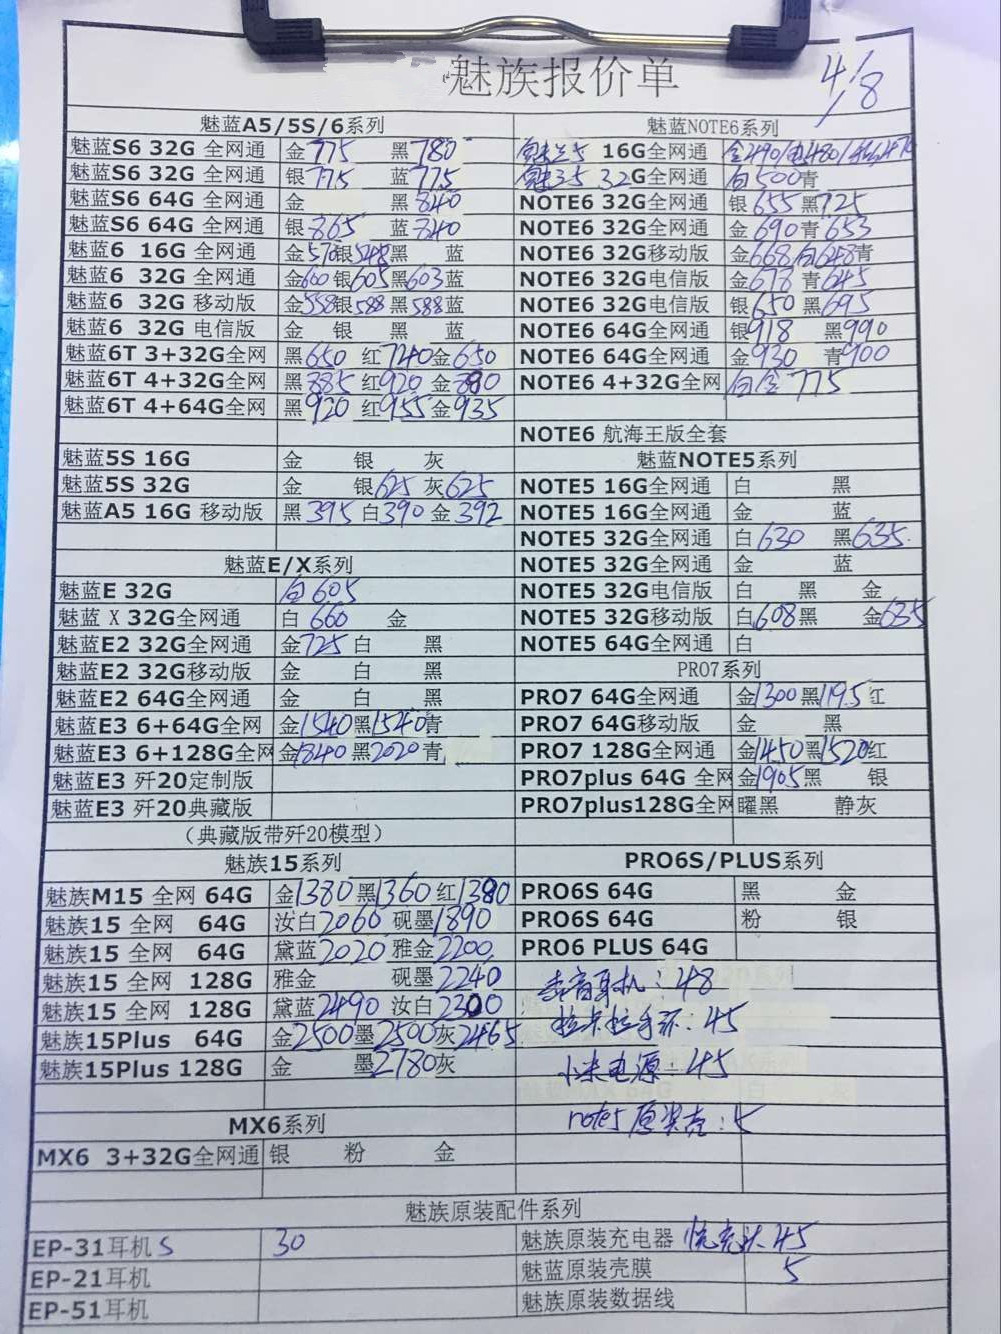 魅族报价单 4/8
魅蓝A5/5S/6系列
魅蓝S6 32G 全网通 金775 黑780
魅蓝S6 32G 全网通 银775 蓝775
魅蓝S6 64G 全网通 金 黑840
魅蓝S6 64G 全网通 银865 蓝840
魅蓝6 16G 全网通 金570银548黑 蓝
魅蓝6 32G 全网通 金600银605黑603蓝
魅蓝6 32G 移动版 金558银588黑588蓝
魅蓝6 32G 电信版 金 银 黑 蓝
魅蓝6T 3+32G全网 黑650 红740金650
魅蓝6T 4+32G全网 黑885 红920 金890
魅蓝6T 4+64G全网 黑920 红955金935
魅蓝5S 16G 金 银 灰
魅蓝5S 32G 金 银625 灰625
魅蓝A5 16G 移动版 黑395 白390 金392
魅蓝E/X系列
魅蓝E 32G 白605
魅蓝 X 32G全网通 白660 金
魅蓝E2 32G全网通 金725 白 黑
魅蓝E2 32G移动版 金 白 黑
魅蓝E2 64G全网通 金 白 黑
魅蓝E3 6+64G全网 金1540黑1540青
魅蓝E3 6+128G全网 金1840黑2020青
魅蓝E3 歼20定制版
魅蓝E3 歼20典藏版
（典藏版带歼20模型）
魅族15系列
魅族M15 全网 64G 金1380黑1360红1380
魅族15 全网 64G 汝白2060 砚墨1890
魅族15 全网 64G 黛蓝2020 雅金2200
魅族15 全网 128G 雅金 砚墨2240
魅族15 全网 128G 黛蓝2490 汝白2300
魅族15Plus 64G 金2500墨2500灰2465
魅族15Plus 128G 金 墨2780灰
MX6系列
MX6 3+32G全网通 银 粉 金
魅蓝NOTE6系列
16G全网通 金490/
32G全网通 白500青
NOTE6 32G全网通 银655黑725
NOTE6 32G全网通 金690青653
NOTE6 32G移动版 金668/白648青
NOTE6 32G电信版 金678 青645
NOTE6 32G电信版 银650黑695
NOTE6 64G全网通 银918 黑990
NOTE6 64G全网通 金930 青900
NOTE6 4+32G全网 白金 775
NOTE6 航海王版全套
魅蓝NOTE5系列
NOTE5 16G全网通 白 黑
NOTE5 16G全网通 金 蓝
NOTE5 32G全网通 白630 黑635
NOTE5 32G全网通 金 蓝
NOTE5 32G电信版 白 黑 金
NOTE5 32G移动版 白608黑 金635
NOTE5 64G全网通 白
PRO7系列
PRO7 64G全网通 金1300黑1195红
PRO7 64G移动版 金 黑
PRO7 128G全网通 金1450黑1520红
PRO7plus 64G 全网 金1905黑 银
PRO7plus128G全网 曜黑 静灰
PRO6S/PLUS系列
PRO6S 64G 黑 金
PRO6S 64G 粉 银
PRO6 PLUS 64G
耳机：48
拉卡拉手环：45
小米电源：45
note5原装壳：5
魅族原装配件系列
EP-31耳机S 30
EP-21耳机
EP-51耳机
魅族原装充电器 快充头45
魅蓝原装壳膜 5
魅族原装数据线